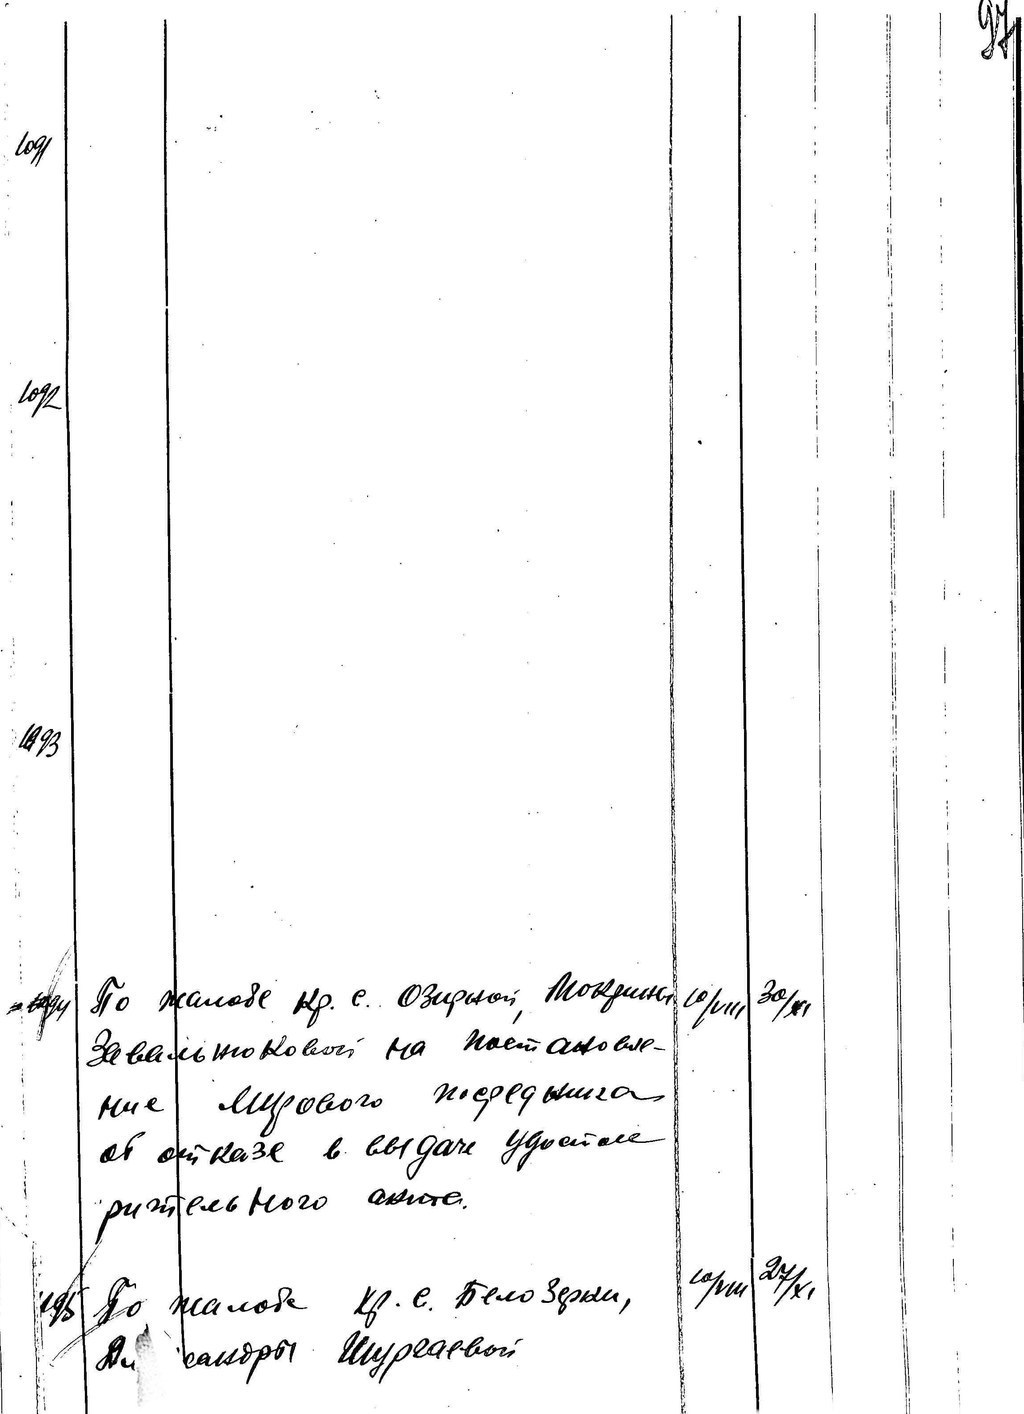 97
1091
1092
1093
1094 По жалобе кр. с. Озирной, Мокрины 10/VIII 30/XI
Завальнюковой на постановле-
ние Мирового посредника
об отказе в выдаче удостове
рительного акта.
1095 По жалобе кр. с. Белозерки, 10/VIII 27/XI
сандры